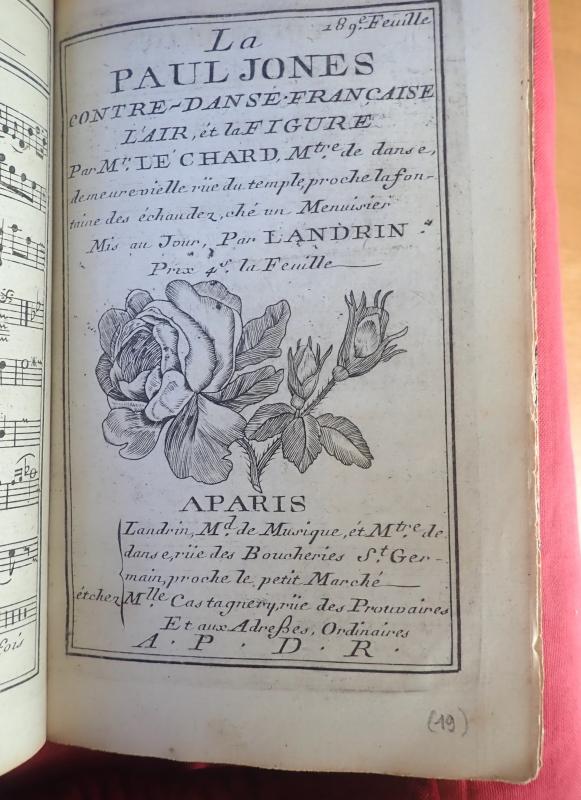 189.e Feuille
La
PAUL JONES
CONTRE-DANSE FRANÇAISE
L'AIR, ét la FIGURE
Par M.r LE CHARD, M.tre de danse,
demeure vielle rüe du temple, proche la fon-
taine des échaudez, ché un Menuisier
Mis au Jour, Par LANDRIN
Prix 4.s la Feuille
APARIS
Landrin, M.d de Musique, ét M.tre de
danse, rüe des Boucheries S.t Ger-
main, proche le petit Marché
ét chez M.lle Castagnery, rüe des Prouvaires
Et aux Adreßes, Ordinaires
A. P. D. R.
(19)
fois